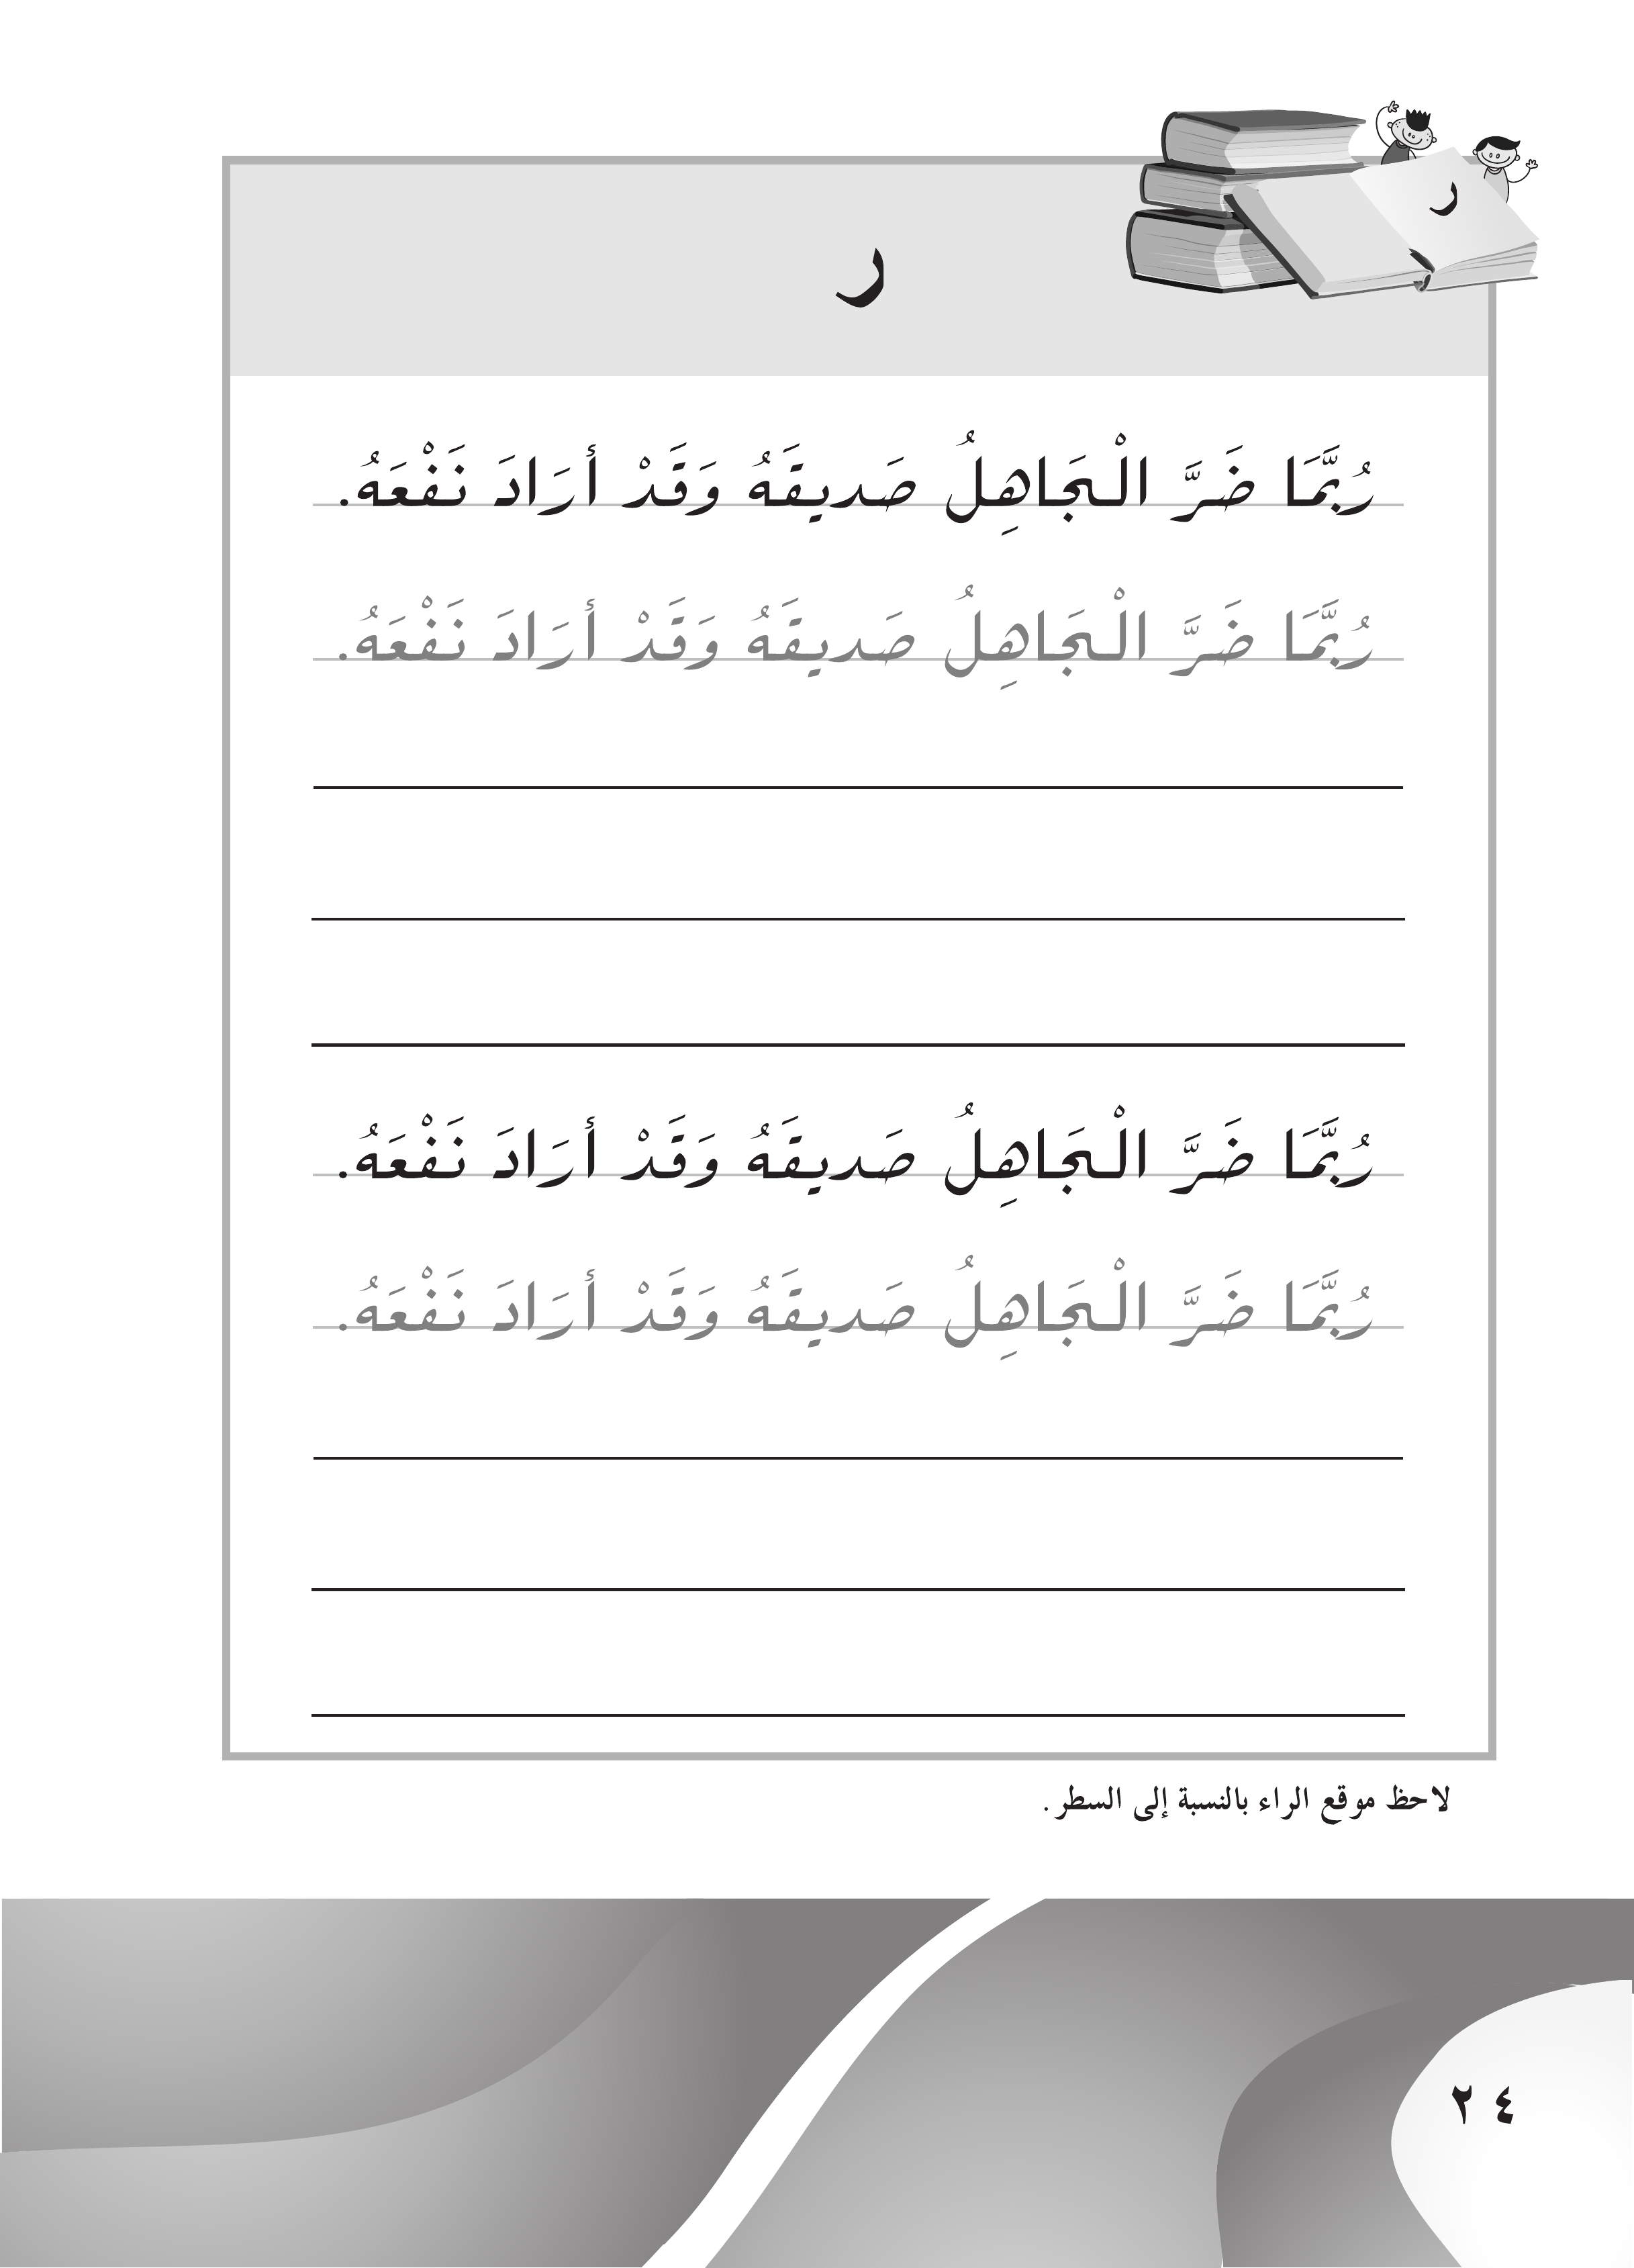 ر
ر
رُبَّمَا ضَرَّ الْجَاهِلُ صَديقَهُ وَقَدْ أرَادَ نَفْعَهُ.
رُبَّمَا ضَرَّ الْجَاهِلُ صَديقَهُ وَقَدْ أرَادَ نَفْعَهُ.
رُبَّمَا ضَرَّ الْجَاهِلُ صَديقَهُ وَقَدْ أرَادَ نَفْعَهُ.
رُبَّمَا ضَرَّ الْجَاهِلُ صَديقَهُ وَقَدْ أرَادَ نَفْعَهُ.
لاحظ موقع الراء بالنسبة إلى السطر.
٢٤